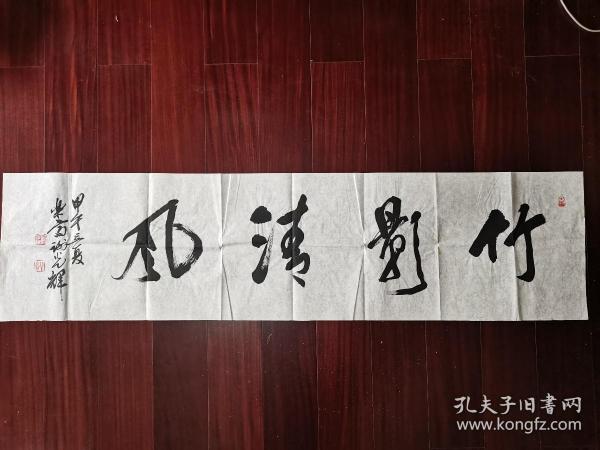 竹影清风
甲午三夏
光辉
孔夫子旧书网
www.kongfz.com